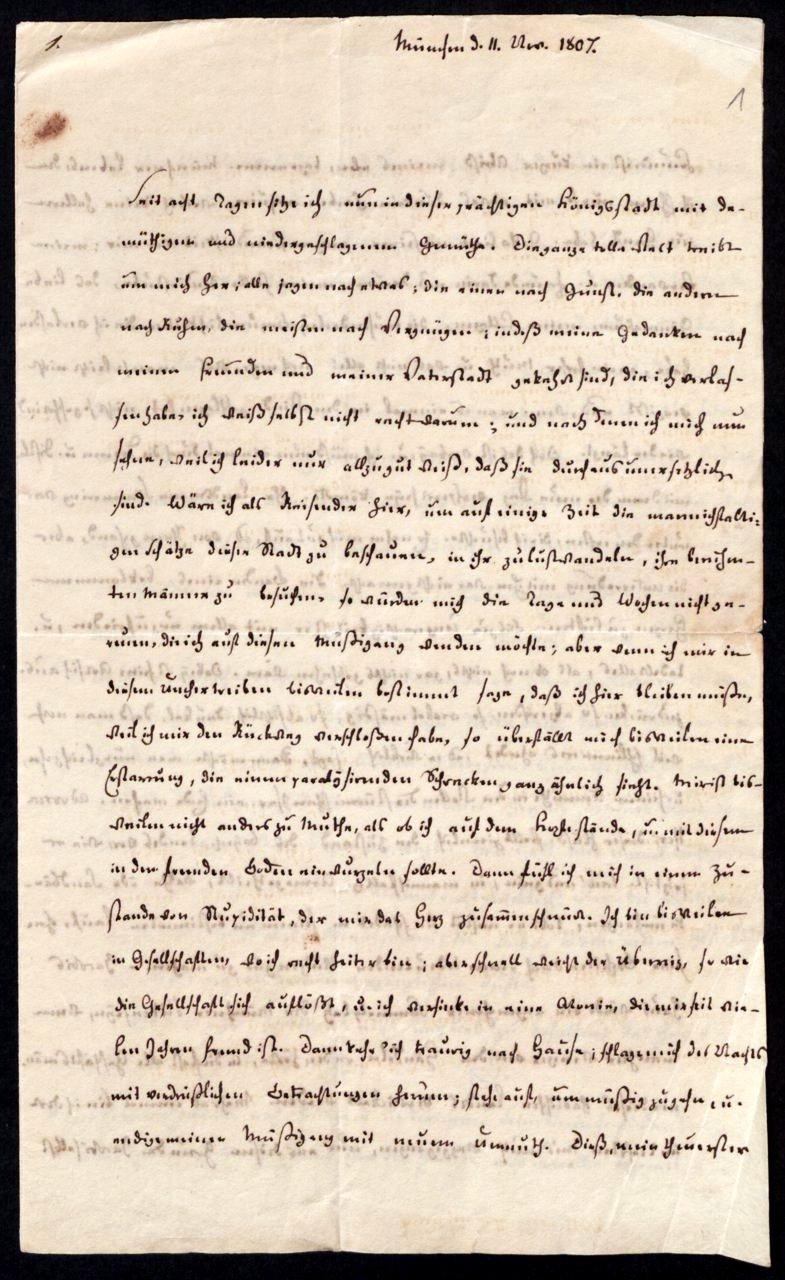 1.
München d. 11. Nov. 1807.
1
Seit acht Tagen sitze ich nun in dieser prächtigen Königsstadt mit de-
müthigem und niedergeschlagenem Gemüthe. Die ganze tolle Welt treibt
um mich her; alle jagen nach etwas; die einen nach Gunst, die andern
nach Ruhm, die meisten nach Vergnügen; indeß meine Gedanken nach
meinen Freunden und meiner Vaterstadt gekehrt sind, die ich verlas-
sen habe, ich weiß selbst nicht recht warum; und nach denen ich mich nun
sehne, weil ich leider nur allzugut weiß, daß sie durchaus unersetzlich
sind. Wäre ich als Reisender hier, um auf einige Zeit die mannichfalti-
gen Schätze dieser Stadt zu beschauen, in ihr zu lustwandeln, ihre berühm-
ten Männer zu besuchen, so würden mich die Tage und Wochen nicht ge-
reuen, die ich auf diesen Müßigang wenden möchte; aber wenn ich mir in
diesem Umhertreiben bisweilen bestimmt sage, daß ich hier bleiben müße,
weil ich mir den Rückweg verschloßen habe, so überfällt mich bisweilen eine
Erstarrung, die einem paralysirenden Schrecken ganz ähnlich sieht. Mir ist bis-
weilen nicht anders zu Muthe, als ob ich auf dem Kopfe stände, u. mit diesem
in den fremden Boden einwurzeln sollte. Dann fühl ich mich in einem Zu-
stande von Stupidität, der mir das Herz zusammenschnürt. Ich bin bisweilen
in Gesellschaften, wo ich recht heiter bin; aber schnell weicht der so wie
die Gesellschaft sich auflößt, u. ich versinke in eine Atonie, die mir seit vie-
len Jahren fremd ist. Dann kehr' ich traurig nach Hause; schlage mich des Nachts
mit verdrüßlichen Betrachtungen herum; stehe auf, um müßig zu gehn, u.
endige meinen Müßigang mit neuem Unmuth. Dieß, mein theuerster